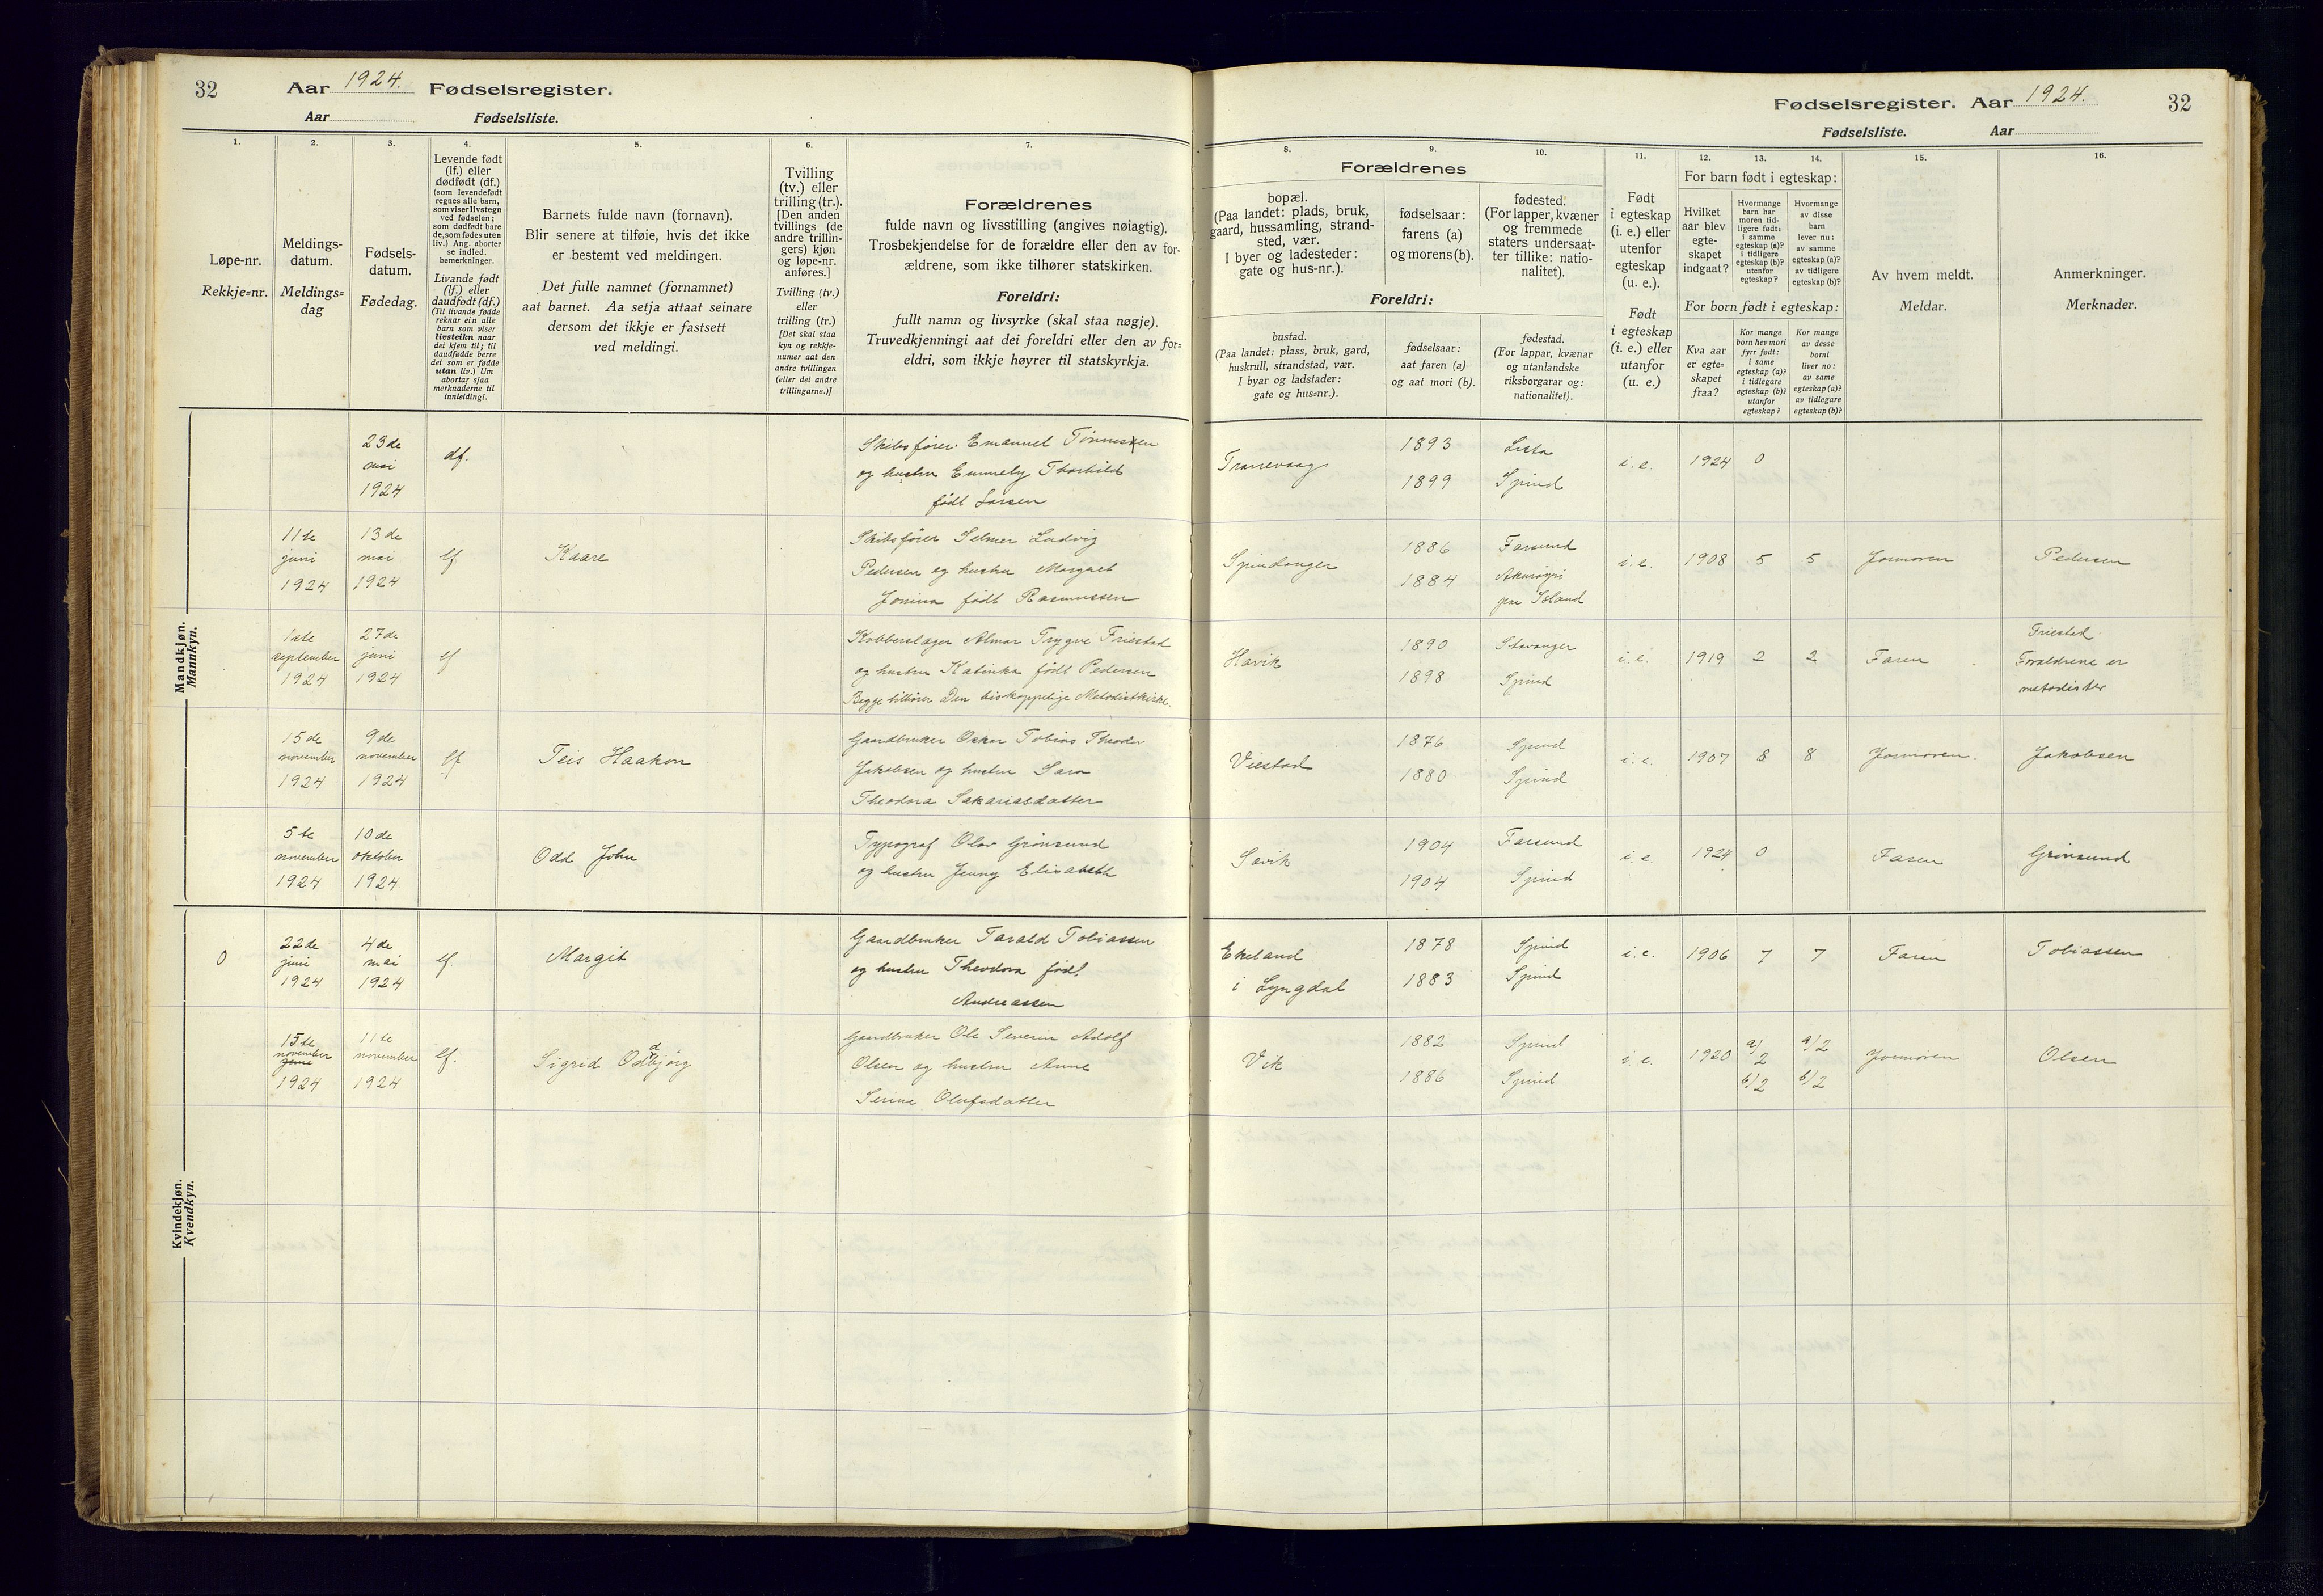 32
Aar 1924. Fødselsregister.
Aar Fødselsliste.
1.
Løpe-nr.
Rekkje=nr.
2.
Meldings-
datum.
Meldings=
dag
3.
Fødsels-
datum.
Fødedag.
4.
Levende født
(lf.) eller
dødfødt (df.)
(som levendefødt
regnes alle barn,
som viser livstegn
ved fødselen;
som dødfødt bare
de, som fødes uten
liv.) Ang. aborter
se indled.
bemerkninger.
Livande født
(lf.) eller
daudfødt (df.)
(Til livande fødde
reknar ein alle
barn som viser
livsteikn naar
dei kjem til; til
daudfødde berre
dei som er fødde
utan liv.) Um
abortar sjaa
merknaderne til
innleidingi.
5.
Barnets fulde navn (fornavn).
Blir senere at tilføie, hvis det ikke
er bestemt ved meldingen.
Det fulle namnet (fornamnet)
aat barnet. Aa setja attaat seinare
dersom det ikkje er fastsett
ved meldingi.
6.
Tvilling
(tv.) eller
trilling (tr.).
[Den anden
tvillings (de
andre trillin-
gers) kjøn
og løpe-nr.
anføres.]
Tvilling (tv.)
eller
trilling (tr.)
[Det skal staa
kyn og rekkje-
numer aat den
andre tvillingen
(eller dei andre
trillingarne.)]
7.
Forældrenes
fulde navn og livsstilling (angives nøiagtig).
Trosbekjendelse for de forældre eller den av for-
ældrene, som ikke tilhører statskirken.
Foreldri:
fullt namn og livsyrke (skal staa nøgje).
Truvedkjenningi aat dei foreldri eller den av for=
eldri, som ikkje høyrer til statskyrkja.
Mandkjøn.
Mannkyn.
23de
mai
1924
df.
Skibsfører Emanuel Tønnessen
og hustru Emmely Thorhild
født Larsen
11te
juni
1924
13de
mai
1924
lf
Kaare
Skibsfører Selmer Ludvig
Pedersen og hustru Margret
Jonina født Rasmussen
1ste
september
1924
27de
juni
1924
lf
Kobberslager Almar Trygve Friestad
og hustru Katinka født Pedersen
Begge tilhører Den biskoppelige Metodistkirke.
15de
november
1924
9de
november
1924
lf
Teis Haakon
Gaardbruker Oskar Tobias Theodor
Jakobsen og hustru Sara
Theodora Sakariasdatter
5te
november
1924
10de
oktober
1924
Odd John
Typograf Olav Grønsund
og hustru Jenny Elisabeth
Kvindekjøn.
Kvendkyn.
0
22de
juni
1924
4de
mai
1924
lf.
Margit
Gaardbruker Tarald Tobiassen
og hustru Theodora født
Andreassen
15te
november
juni
1924
11te
november
1924
lf.
Sigrid Oddbjørg
Gaardbruker Ole Severin Adolf
Olsen og hustru Anne
Serine Olufsdatter
Fødselsregister. Aar 1924. 32
Fødselsliste. Aar
8.
Forældrenes
bopæl.
(Paa landet: plads, bruk,
gaard, hussamling, strand-
sted, vær.
I byer og ladesteder:
gate og hus-nr.).
Foreldri:
bustad.
(Paa landet: plass, bruk, gard,
huskrull, strandstad, vær.
I byar og ladstader:
gate og hus=nr.).
9.
fødselsaar:
farens (a)
og morens (b).
fødselsaar:
aat faren (a)
og aat mori (b).
10.
fødested.
(For lapper, kvæner
og fremmede
staters undersaat-
ter tillike: natio-
nalitet).
fødestad.
(For lappar, kvænar
og utanlandske
riksborgarar og:
nationalitet).
11.
Født
i egteskap
(i. e.) eller
utenfor
egteskap
(u. e.).
Født
i egteskap
(i. e.) eller
utanfor
(u. e.)
12. 13. 14.
For barn født i egteskap:
Hvilket
aar blev
egte-
skapet
indgaat?
Hvormange
barn har
moren tid-
ligere født:
i samme
egteskap (a)?
i tidligere
egteskap (b)?
utenfor
egteskap?
Hvormange
av disse
barn
lever nu:
av samme
egteskap (a)?
av tidligere
egteskap (b)?
For born født i egteskap:
Kva aar
er egte=
skapet
fraa?
Kor mange
born hev mori
fyrr født:
i same
egteskap (a)?
i tidlegare
egteskap (b)?
utanfor
egteskap?
Kor mange
av desse
borni
liver no:
av same
egteskap (a)?
av tidlegare
egteskap (b)?
15.
Av hvem meldt.
Meldar.
16.
Anmerkninger.
Merknader.
Tranevaag
1893
1899
Lista
Spind
i. e. 1924 0
Spindanger
1886
1884
Farsund
Akurøyri
paa Island
i. e. 1908 5 5 Jormoren Pedersen
Havik
1890
1898
Stavanger
Spind
i. e. 1919 2 2 Faren
Friestad
Forældrene er
metodister
Viestad
1876
1880
Spind
Spind
i. e. 1907 8 8 Jormoren. Jakobsen
Savik
1904
1904
Farsund
Spind
i. e. 1924 0 Faren Grønsund
Ekeland
i Lyngdal
1878
1883
Spind
Spind
i. e. 1906 7 7 Faren Tobiassen
Vik
1882
1886
Spind
Spind
i. e. 1920
a/2
b/2
a/2
b/2
Jormoren Olsen